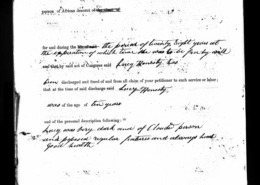 person of African descent
for and during the the period of twenty Eight years at
the expiration of which time she was to be free by will
and that by said act of Congress said Lucy Hamesly was
free discharged and freed of and from all claim of your petitioner to such service or labor;
that at the time of said discharge said Lucy Hamesly
was of the age of ten years
and of the personal description following:
Lucy was very dark and of Slender person
and possessed regular features and always had
good health